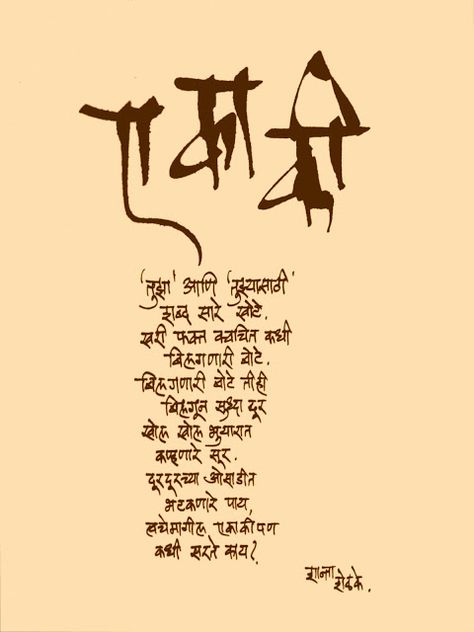 एकाकी
'तुझा' आणि 'तुझ्यासाठी'
शब्द सारे खोटे.
खरी फक्त क्वचित कधी
बिलगणारी बोटे.
बिलगणारी बोटे तीही
बिलगून सुध्दा दूर
खोल खोल भुयारात
कण्हणारे सूर.
दूरदूरच्या ओसाडीत
भटकणारे पाय,
त्वचेमागील एकाकीपण
कधी सरते काय?
शान्ता
शेळके.